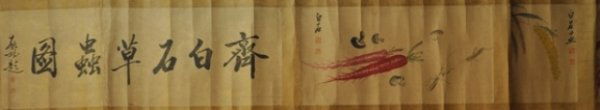 齊白石草蟲圖
題
白石
白石